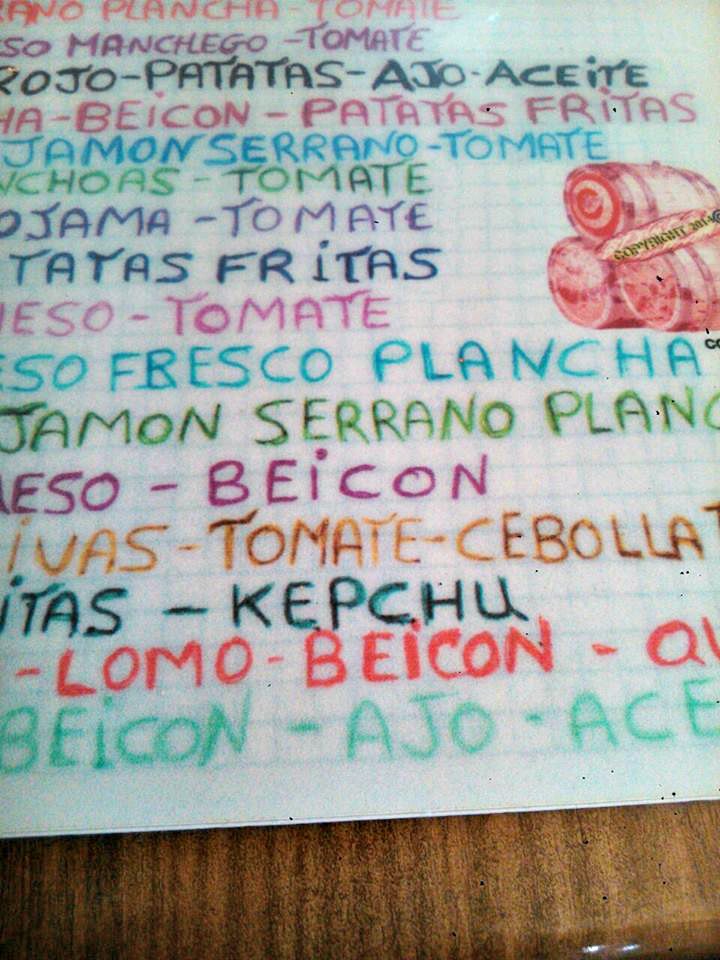 RANO PLANCHA - TOMATE
ESO MANCHEGO - TOMATE
ROJO - PATATAS - AJO - ACEITE
HA - BEiCON - PATATAS FRiTAS
JAMON SERRANO - TOMATE
NCHOAS - TOMATE
OJAMA - TOMATE
TATAS FRiTAS
UESO - TOMATE
ESO FRESCO PLANCHA
JAMON SERRANO PLANC
UESO - BEiCON
iVAS - TOMATE - CEBOLLA T
iTAS - KEPCHU
- LOMO - BEiCON - QU
BEiCON - AJO - ACE
COPYRIGHT